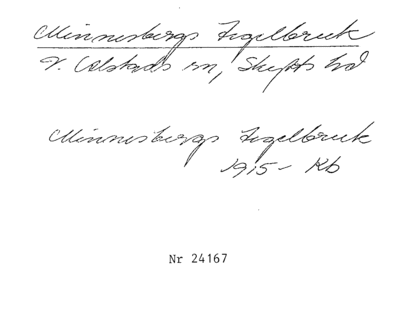 Minnesbergs Tegelbruk
V. Alstads sn, Skytts hd
Minnesbergs Tegelbruk
1915- Kb
Nr 24167